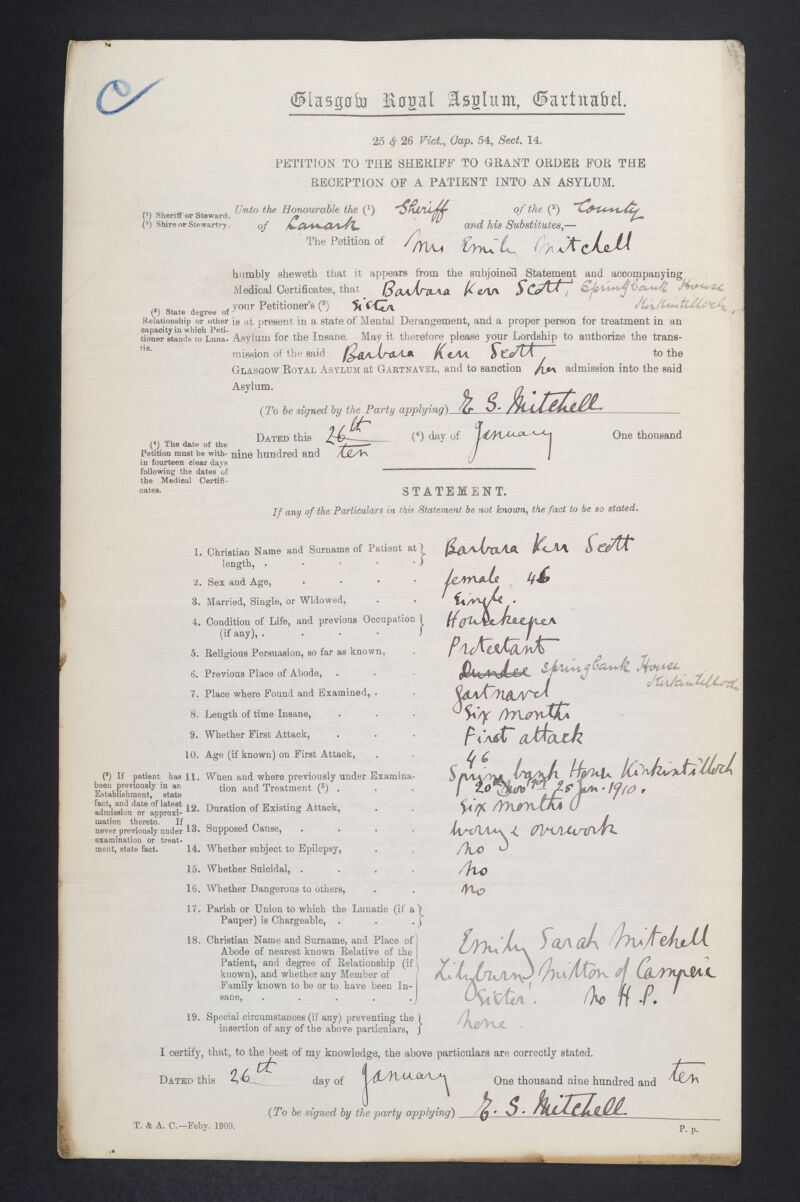 Glasgow Royal Asylum, Gartnavel.
25 & 26 Vict., Cap. 54, Sect. 14.
PETITION TO THE SHERIFF TO GRANT ORDER FOR THE
RECEPTION OF A PATIENT INTO AN ASYLUM.
(¹) Sheriff or Steward.
(²) Shire or Stewartry.
Unto the Honourable the (¹) Sheriff of the (²) County
of Lanark and his Substitutes,—
The Petition of Mrs Emily Mitchell
humbly sheweth that it appears from the subjoined Statement and accompanying
Medical Certificates, that Barbara Kerr Scott, Springbank House
Kirkintilloch,
your Petitioner's (³) Sister
(³) State degree of
Relationship or other
capacity in which Peti-
tioner stands to Luna-
tic.
is at present in a state of Mental Derangement, and a proper person for treatment in an
Asylum for the Insane. May it therefore please your Lordship to authorize the trans-
mission of the said Barbara Kerr Scott to the
GLASGOW ROYAL ASYLUM at GARTNAVEL, and to sanction her admission into the said
Asylum.
(To be signed by the Party applying) E. S. Mitchell
DATED this 26th (⁴) day of January One thousand
nine hundred and ten
(⁴) The date of the
Petition must be with-
in fourteen clear days
following the dates of
the Medical Certifi-
cates.
STATEMENT.
If any of the Particulars in this Statement be not known, the fact to be so stated.
1. Christian Name and Surname of Patient at
length, . Barbara Kerr Scott
2. Sex and Age, female, 46
3. Married, Single, or Widowed, Single.
4. Condition of Life, and previous Occupation
(if any), . Housekeeper
5. Religious Persuasion, so far as known, Protestant
6. Previous Place of Abode, Dundee Springbank House
Kirkintilloch
7. Place where Found and Examined, Gartnavel
8. Length of time Insane, Six months
9. Whether First Attack, First attack
10. Age (if known) on First Attack, 46
11. When and where previously under Examina-
tion and Treatment (⁵) . Spring bank House Kirkintilloch
20th Nov 25 Jan. 1910.
(⁵) If patient has
been previously in an
Establishment, state
fact, and date of latest
admission or approxi-
mation thereto. If
never previously under
examination or treat-
ment, state fact.
12. Duration of Existing Attack, Six months
13. Supposed Cause, Worry & overwork
14. Whether subject to Epilepsy, no
15. Whether Suicidal, no
16. Whether Dangerous to others, no
17. Parish or Union to which the Lunatic (if a
Pauper) is Chargeable,
18. Christian Name and Surname, and Place of
Abode of nearest known Relative of the
Patient, and degree of Relationship (if
known), and whether any Member of
Family known to be or to have been In-
sane,
Emily Sarah Mitchell
Lilyburn, Milton of Campsie
Sister. No H.P.
19. Special circumstances (if any) preventing the
insertion of any of the above particulars, none.
I certify, that, to the best of my knowledge, the above particulars are correctly stated.
DATED this 26th day of January One thousand nine hundred and ten
(To be signed by the party applying) E. S. Mitchell
T. & A. C.—Feby. 1909.
P. p.